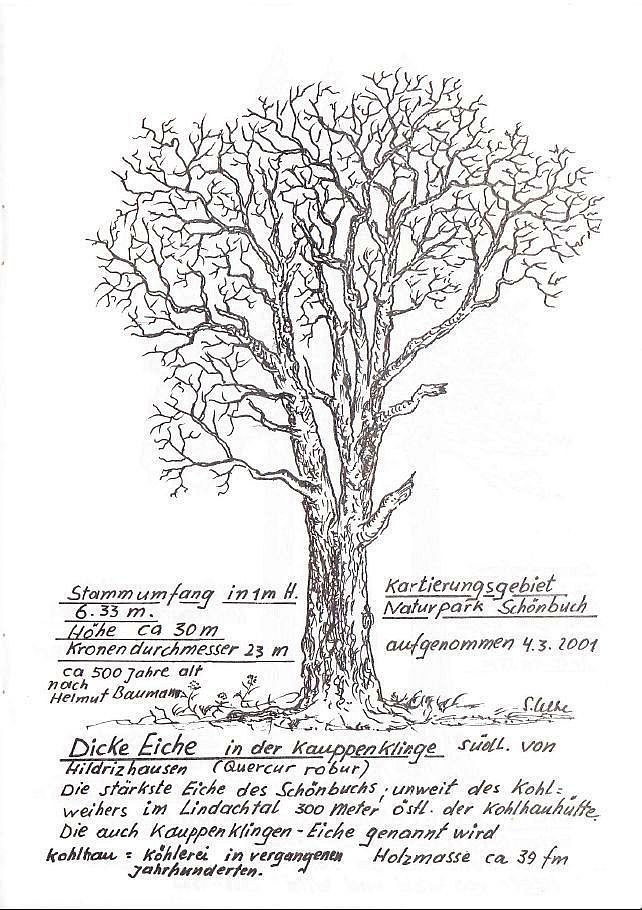 Stammumfang in 1m H.
6.33 m.
Höhe ca 30 m
Kronendurchmesser 23 m
ca 500 Jahre alt
nach
Helmut Baumann
Kartierungsgebiet
Naturpark Schönbuch
aufgenommen 4.3.2001
Dicke Eiche in der Kauppenklinge südl. von
Hildrizhausen (Quercur robur)
Die stärkste Eiche des Schönbuchs, unweit des Kohl=
weihers im Lindachtal 300 Meter östl. der Kohlhauhütte.
Die auch Kauppenklingen-Eiche genannt wird
Kohlhau = Köhlerei in vergangenen Holzmasse ca 39 fm
Jahrhunderten.